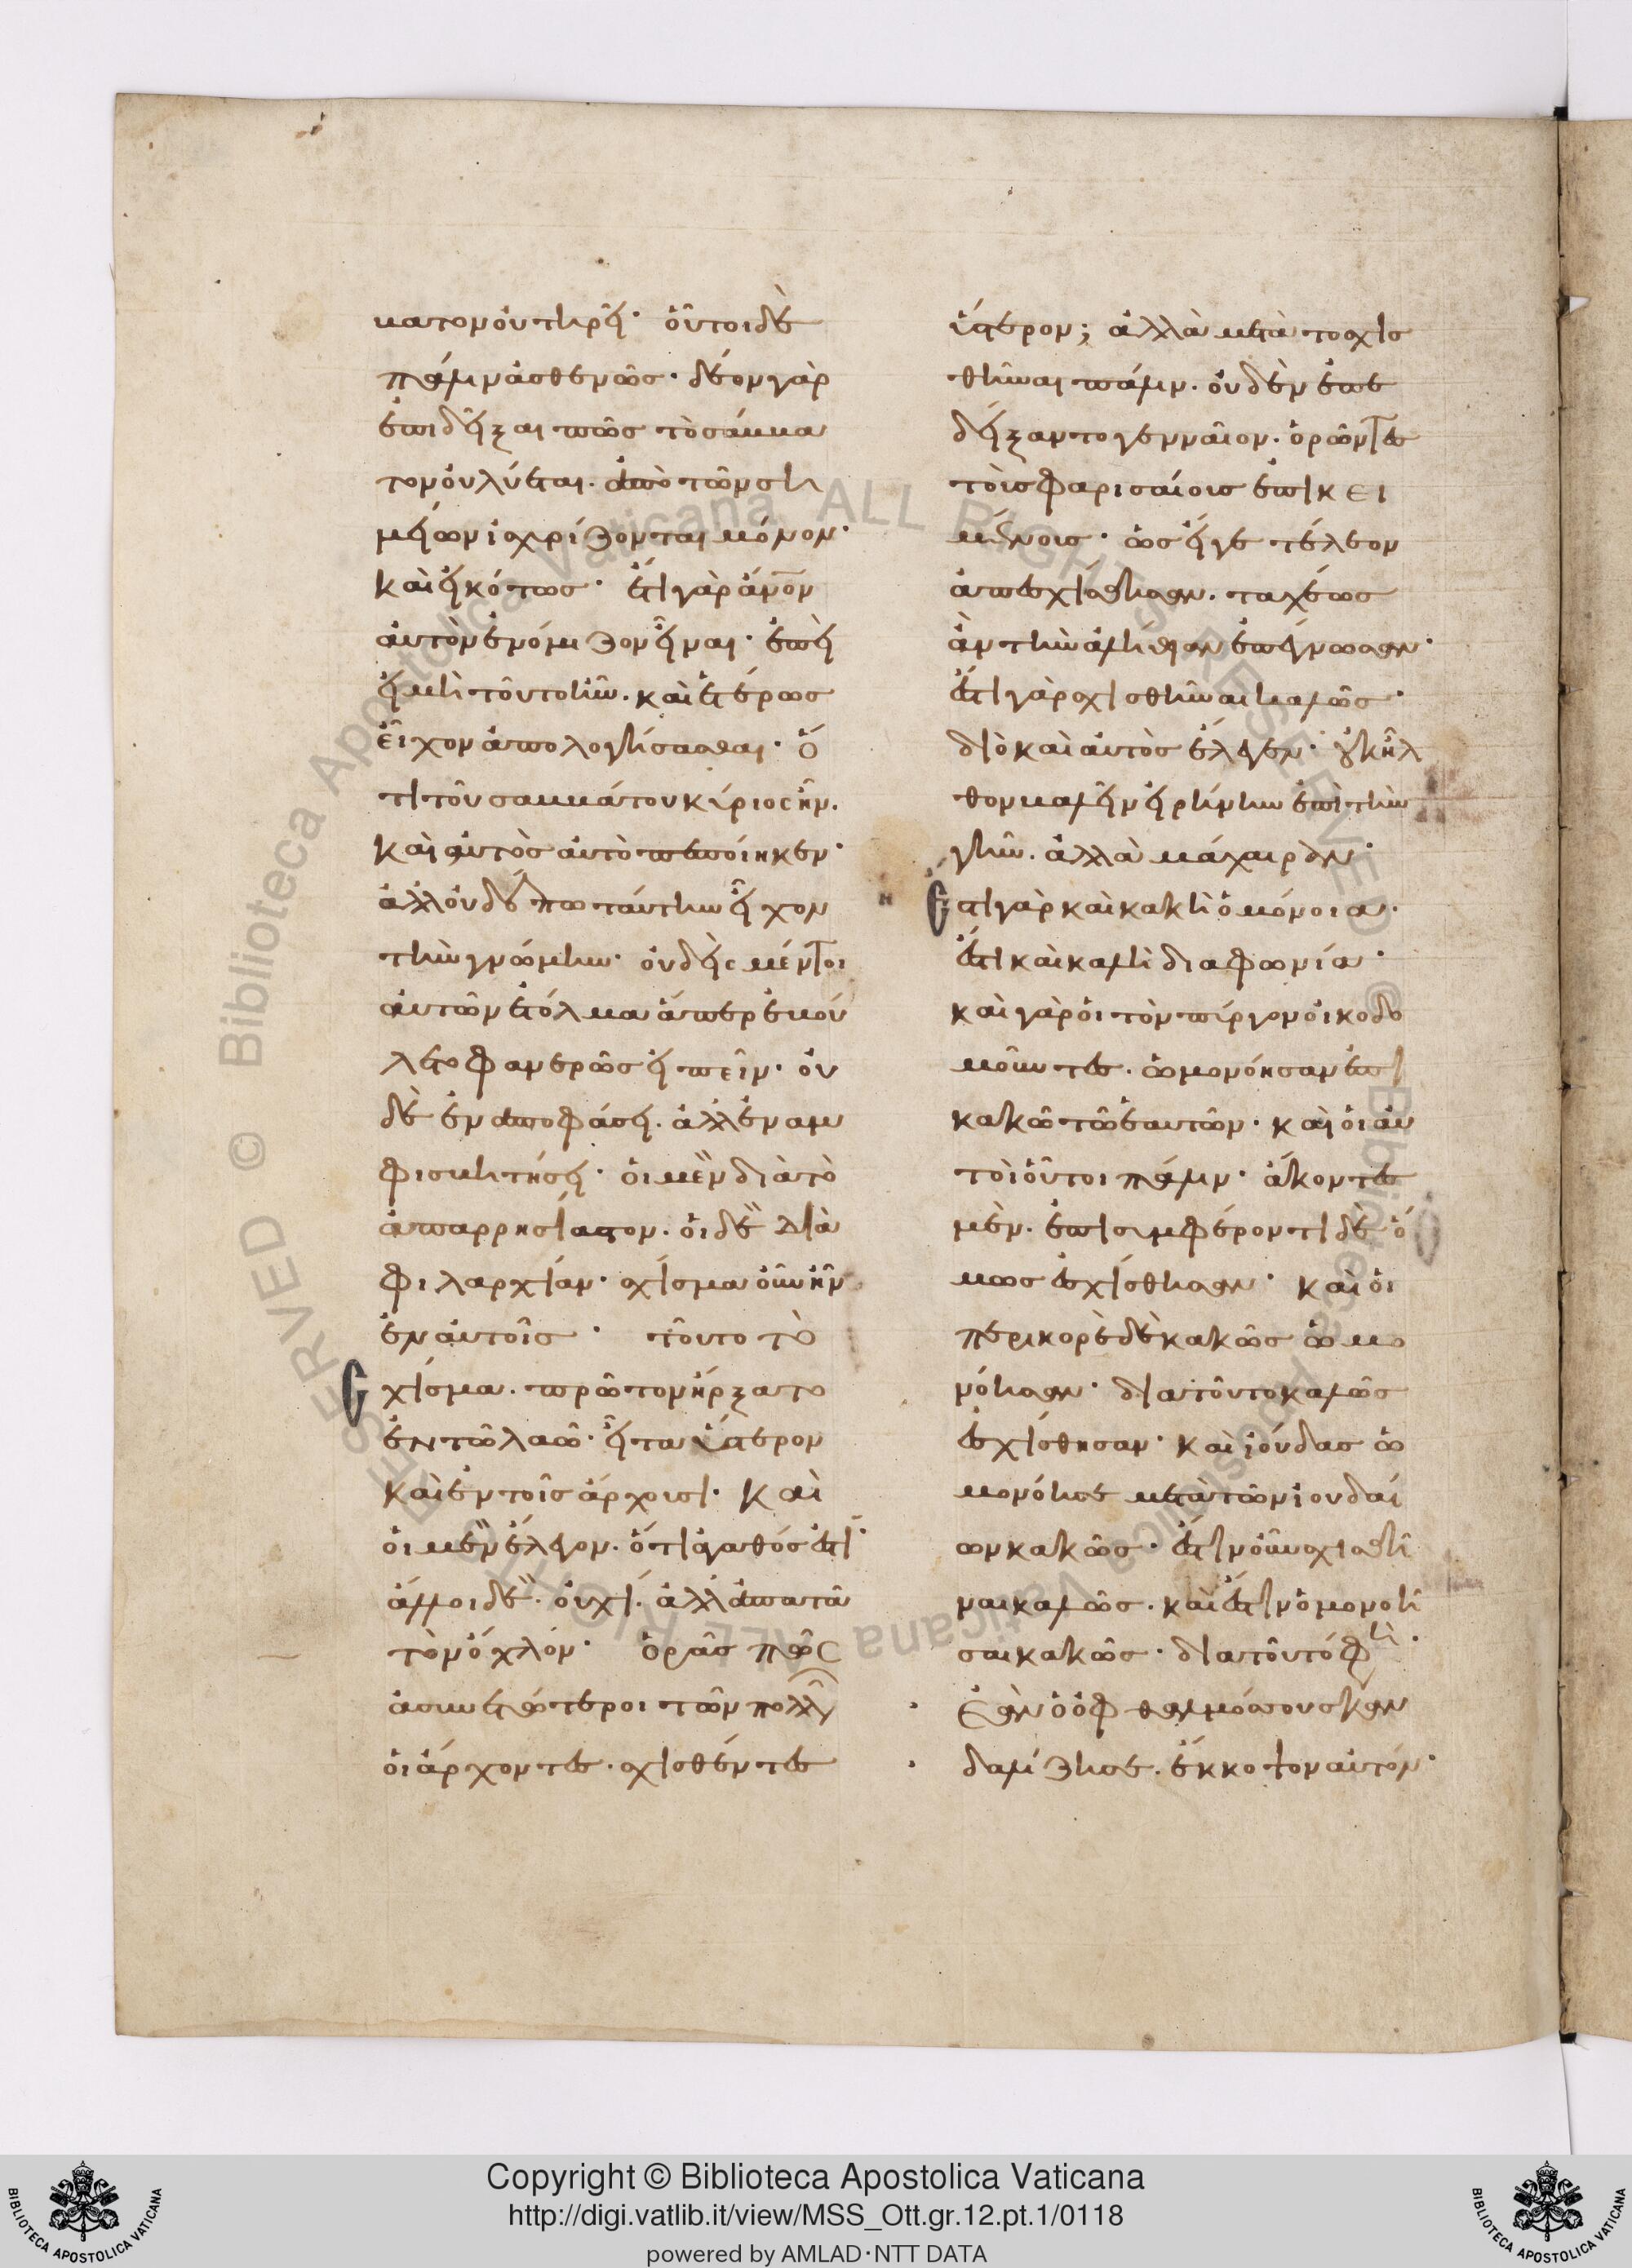 βατον οὐ τηρεῖ· οὗτοι δὲ
πάλιν ἀσθενῶς· δέον γὰρ
ἐπιδεῖξαι πῶς τὸ σάββα
τον οὐ λύεται. ἀπὸ τῶν ση
μείων ἰσχυρίζονται μόνον·
καὶ εἰκότως· ἔτι γὰρ ἄνον
αὐτὸν ἐνόμιζον εἶναι· ἐπεὶ
εἰ μὴ τοῦτο ἦν. καὶ ἑτέρως
εἶχον ἀπολογήσασθαι· ὅ
τι τοῦ σαββάτου κύριος ἦν.
καὶ αὐτὸς αὐτὸ πεποίηκεν·
ἀλλ οὐδέπω ταύτην εἶχον
τὴν γνώμην· οὐδεὶς μέντοι
αὐτῶν ἐτόλμα ἅπερ ἐβού
λετο φανερῶς εἰπεῖν· οὐ
δὲ ἐν ἀποφάσει. ἀλλ ἐν ἀμ
φισβητήσει· οἱ μὲν διὰ τὸ
ἀπαρρησίαστον. οἱ δὲ διὰ
φιλαρχίαν· σχίσμα οὖν ἦν
ἐν αὐτοῖς· τοῦτο τὸ
σχίσμα. πρῶτον ἤρξατο
ἐν τῶ λαῶ· εἶτα ὕστερον
καὶ ἐν τοῖς ἄρχουσι· καὶ
οἱ μὲν ἔλεγον. ὅτι ἀγαθός ἐστι·
ἄλλοι δὲ. οὐχί. ἀλλὰ ἀπατᾶ
τὸν ὄχλον· ὁρᾶς πῶς
ἀσυνετώτεροι τῶν πολλῶν
οἱ ἄρχοντες. σχισθέντες
ὕστερον; ἀλλὰ μετὰ τὸ σχισ
θῆναι πάλιν. οὐδὲν ἐπε
δείξαντο γενναῖον. ὁρῶντες
τοῖς φαρισαίοις ἐπικει
μένοις· ὡς εἴγε τέλεον
ἀπεσχίσθησαν. ταχέως
ἂν τὴν ἀλήθειαν ἐπέγνωσαν·
ἔστι γὰρ σχισθῆναι καλῶς·
διὸ καὶ αὐτὸς ἔλεγεν· οὐκ ἦλ
θον βαλεῖν εἰρήνην ἐπὶ τὴν
γῆν. ἀλλὰ μάχαιραν·
Ἔστι γὰρ καὶ κακὴ ὁμόνοια·
ἔστι καὶ καλὴ διαφωνία·
καὶ γὰρ οἱ τὸν πύργον οἰκοδο
μοῦντες. ὡμονόησαν ἐπὶ
κακῶ τῶ ἑαυτῶν· καὶ οἱ αὐ
τοὶ οὗτοι πάλιν· ἄκοντες
μὲν. ἐπὶ συμφέροντι δὲ ὅ
μως ἐσχίσθησαν· καὶ οἱ
περὶ κορὲ δὲ κακῶς ὡμο
νόησαν· διατοῦτο καλῶς
ἐσχίσθησαν· καὶ ἰούδας ὡ
μονόησε μετὰ τῶν ἰουδαί
ων κακῶς· ἔστιν οὖν σχισθῆ
ναι καλῶς. καὶ ἔστιν ὁμονοῆ
σαι κακῶς· διατοῦτό φη·
Ἐὰν ὁ ὀφθαλμός σου σκαν
δαλίζη σε. ἔκκοψον αὐτόν·
Copyright © Biblioteca Apostolica Vaticana
http://digi.vatlib.it/view/MSS_Ott.gr.12.pt.1/0118
powered by AMLAD·NTT DATA
BIBLIOTECA APOSTOLICA VATICANA
BIBLIOTECA APOSTOLICA VATICANA